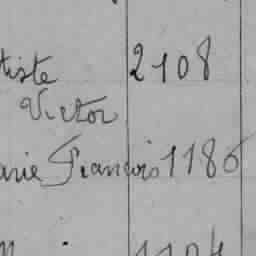 tiste 2108
Victor
arie Francois 1186